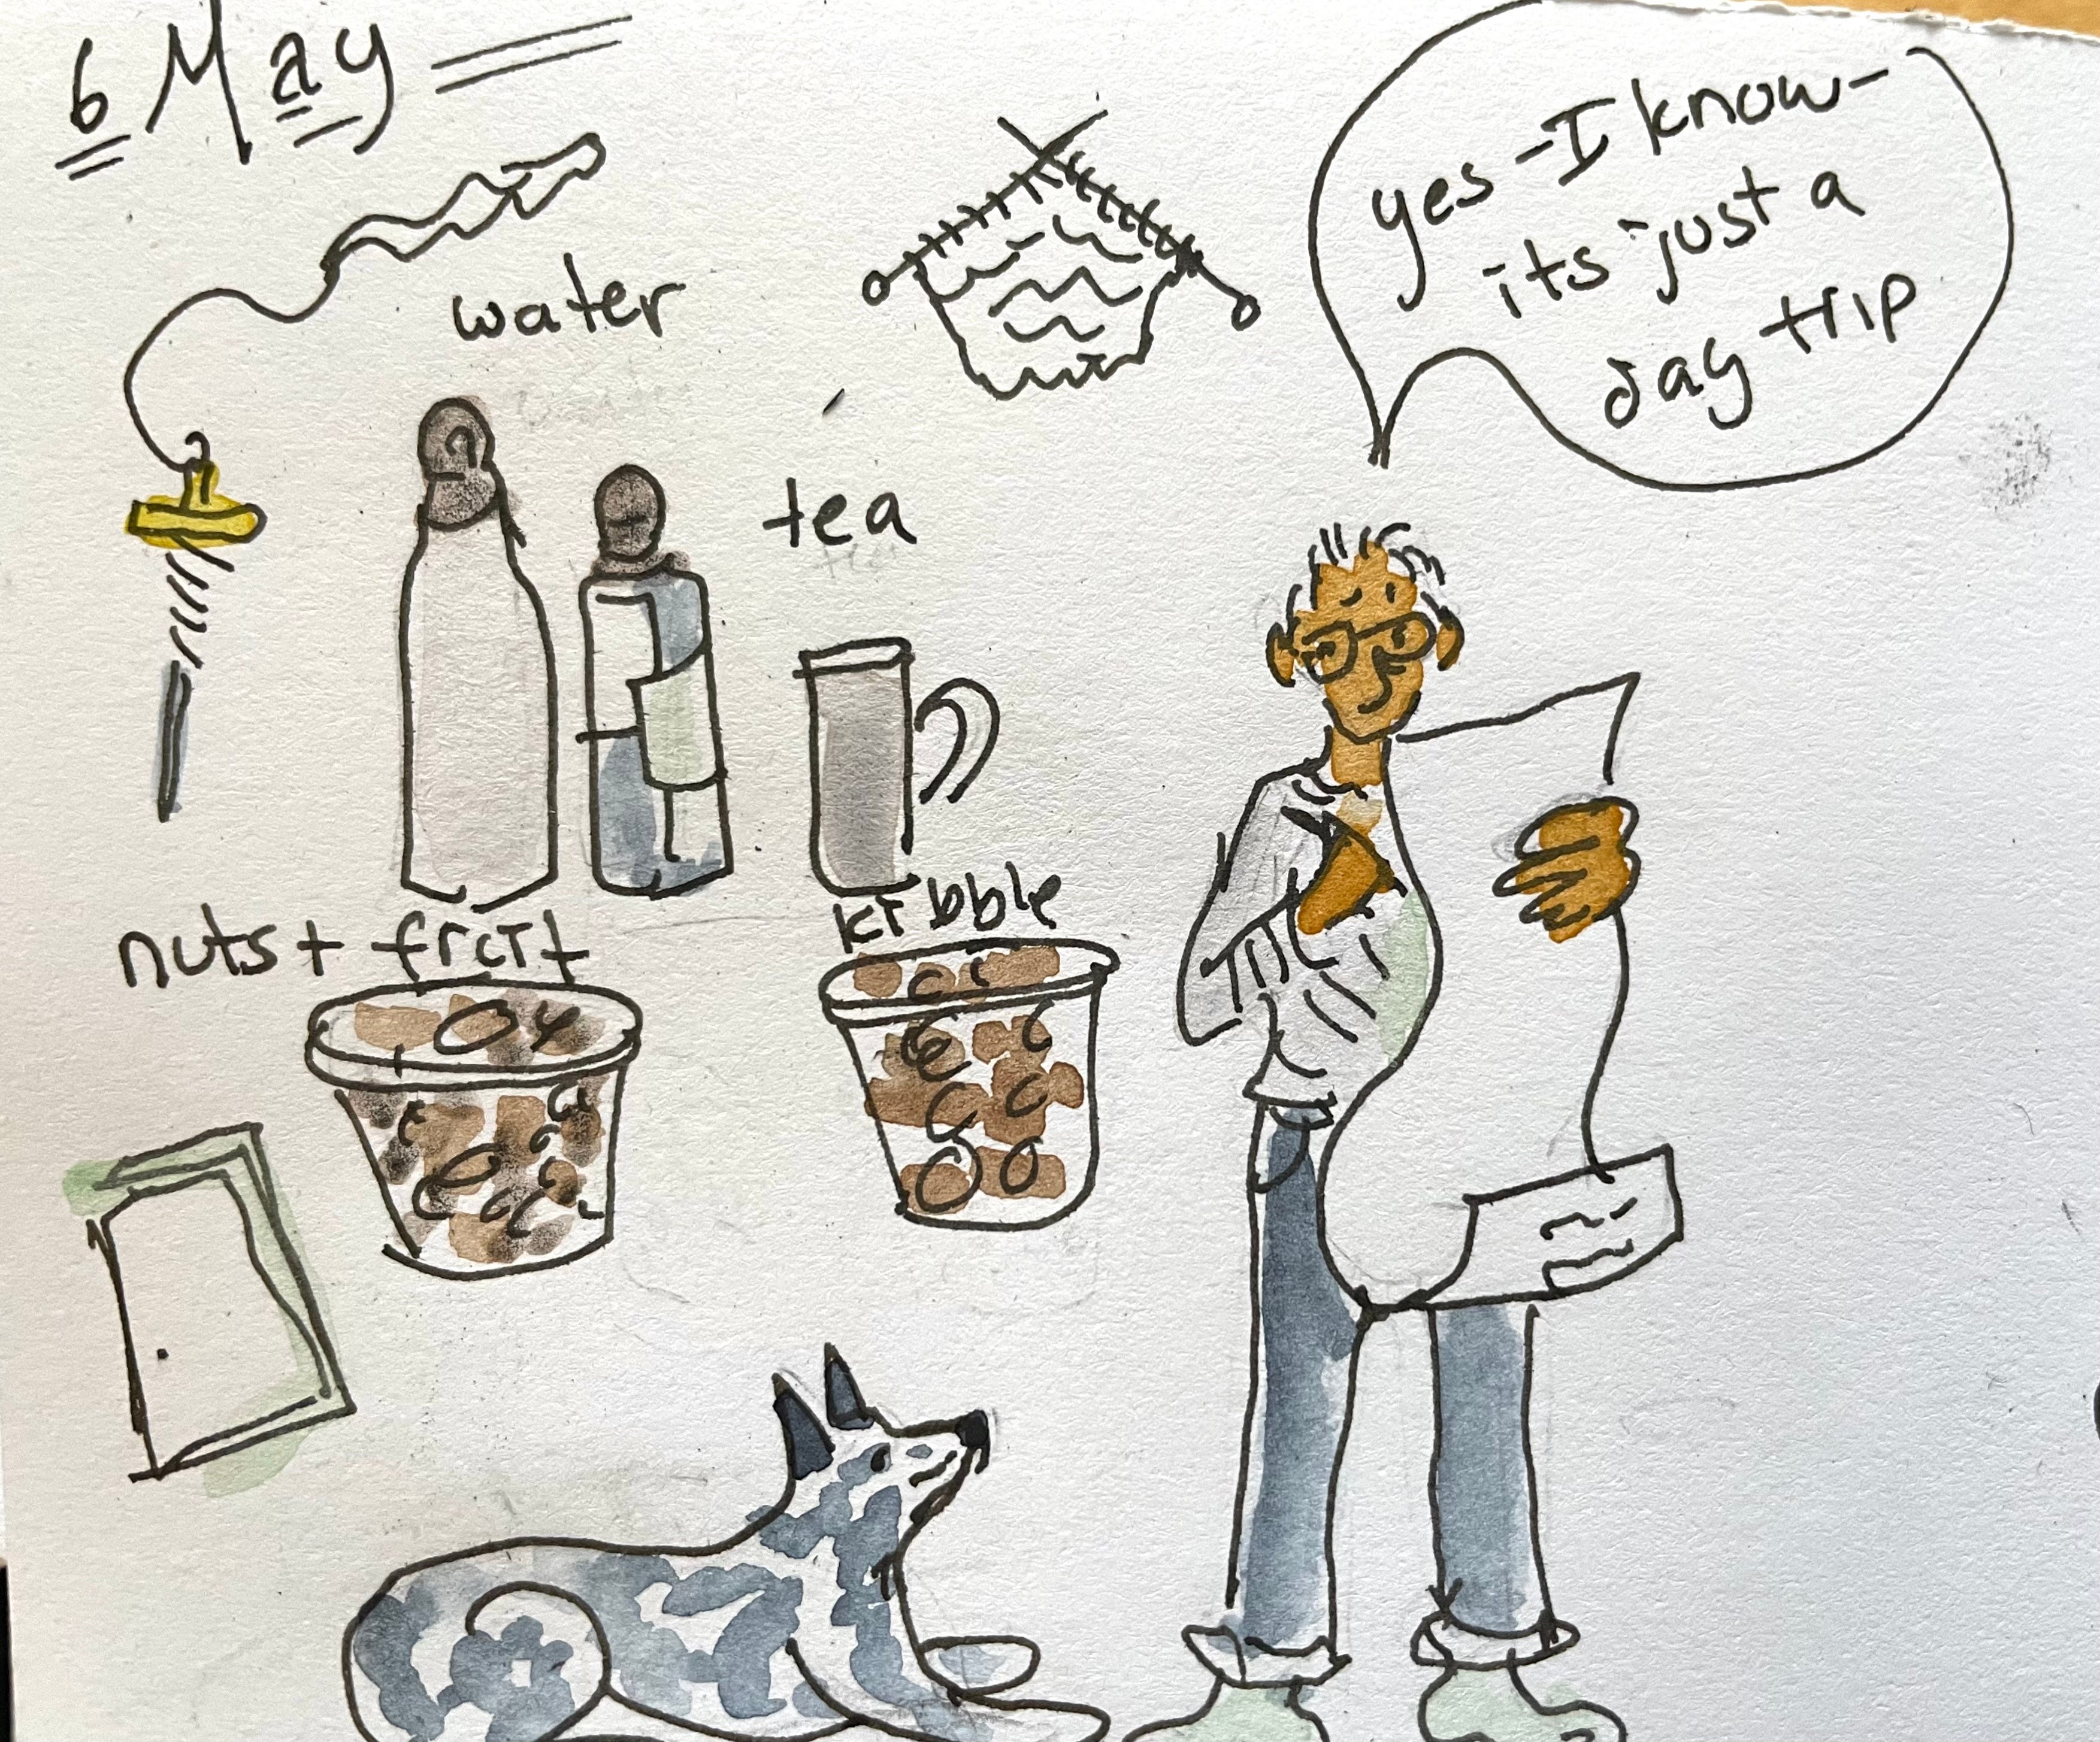 6 May
yes - I know -
its just a
day trip
water
tea
nuts + fruit
kibble